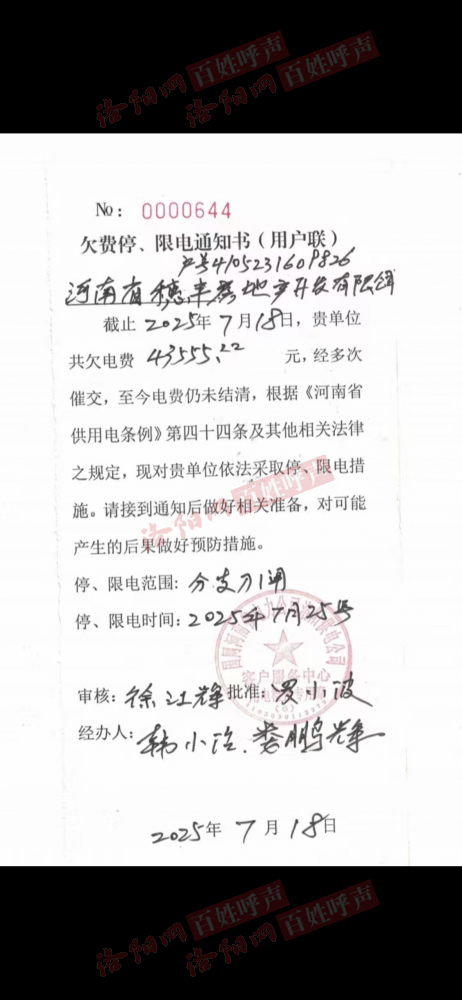 洛阳网 百姓呼声
洛阳网 百姓呼声
No: 0000644
欠费停、限电通知书(用户联)
户号4105231609826
河南省穗丰房地产开发有限公司
截止 2025年7月18日,贵单位
共欠电费 43555.22 元,经多次
催交,至今电费仍未结清,根据《河南省
供用电条例》第四十四条及其他相关法律
之规定,现对贵单位依法采取停、限电措
施。请接到通知后做好相关准备,对可能
洛阳网 百姓呼声
产生的后果做好预防措施。
停、限电范围: 分支刀闸
停、限电时间: 2025年7月25号
客户服务中心
审核: 徐江辉 批准: 罗小波
经办人: 韩小治、娄鹏辉
2025年7月18日
洛阳网 百姓呼声
洛阳网 百姓呼声